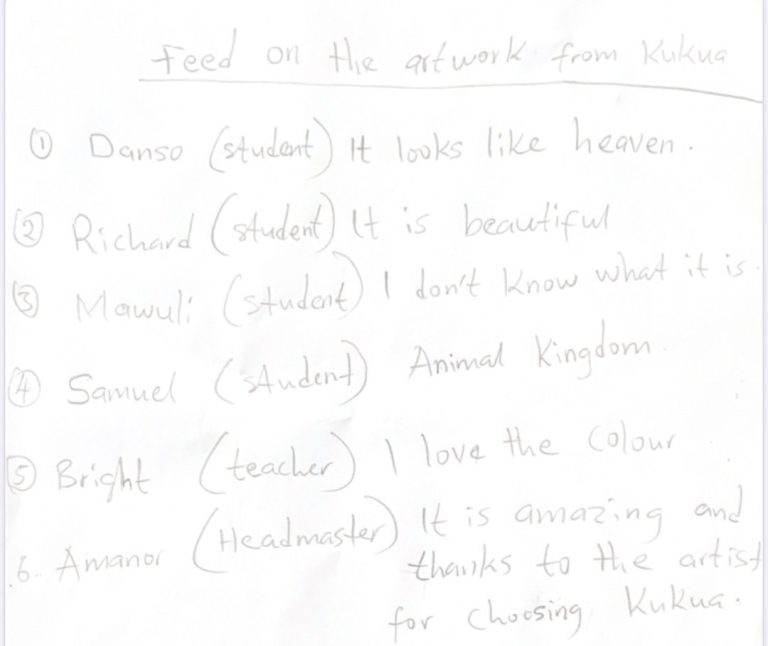 Feed on the artwork from Kukua
① Danso (student) It looks like heaven.
② Richard (student) It is beautiful
③ Mawuli (student) I don't know what it is.
④ Samuel (student) Animal Kingdom.
⑤ Bright (teacher) I love the colour
6. Amanor (Headmaster) It is amazing and
thanks to the artist
for choosing Kukua.